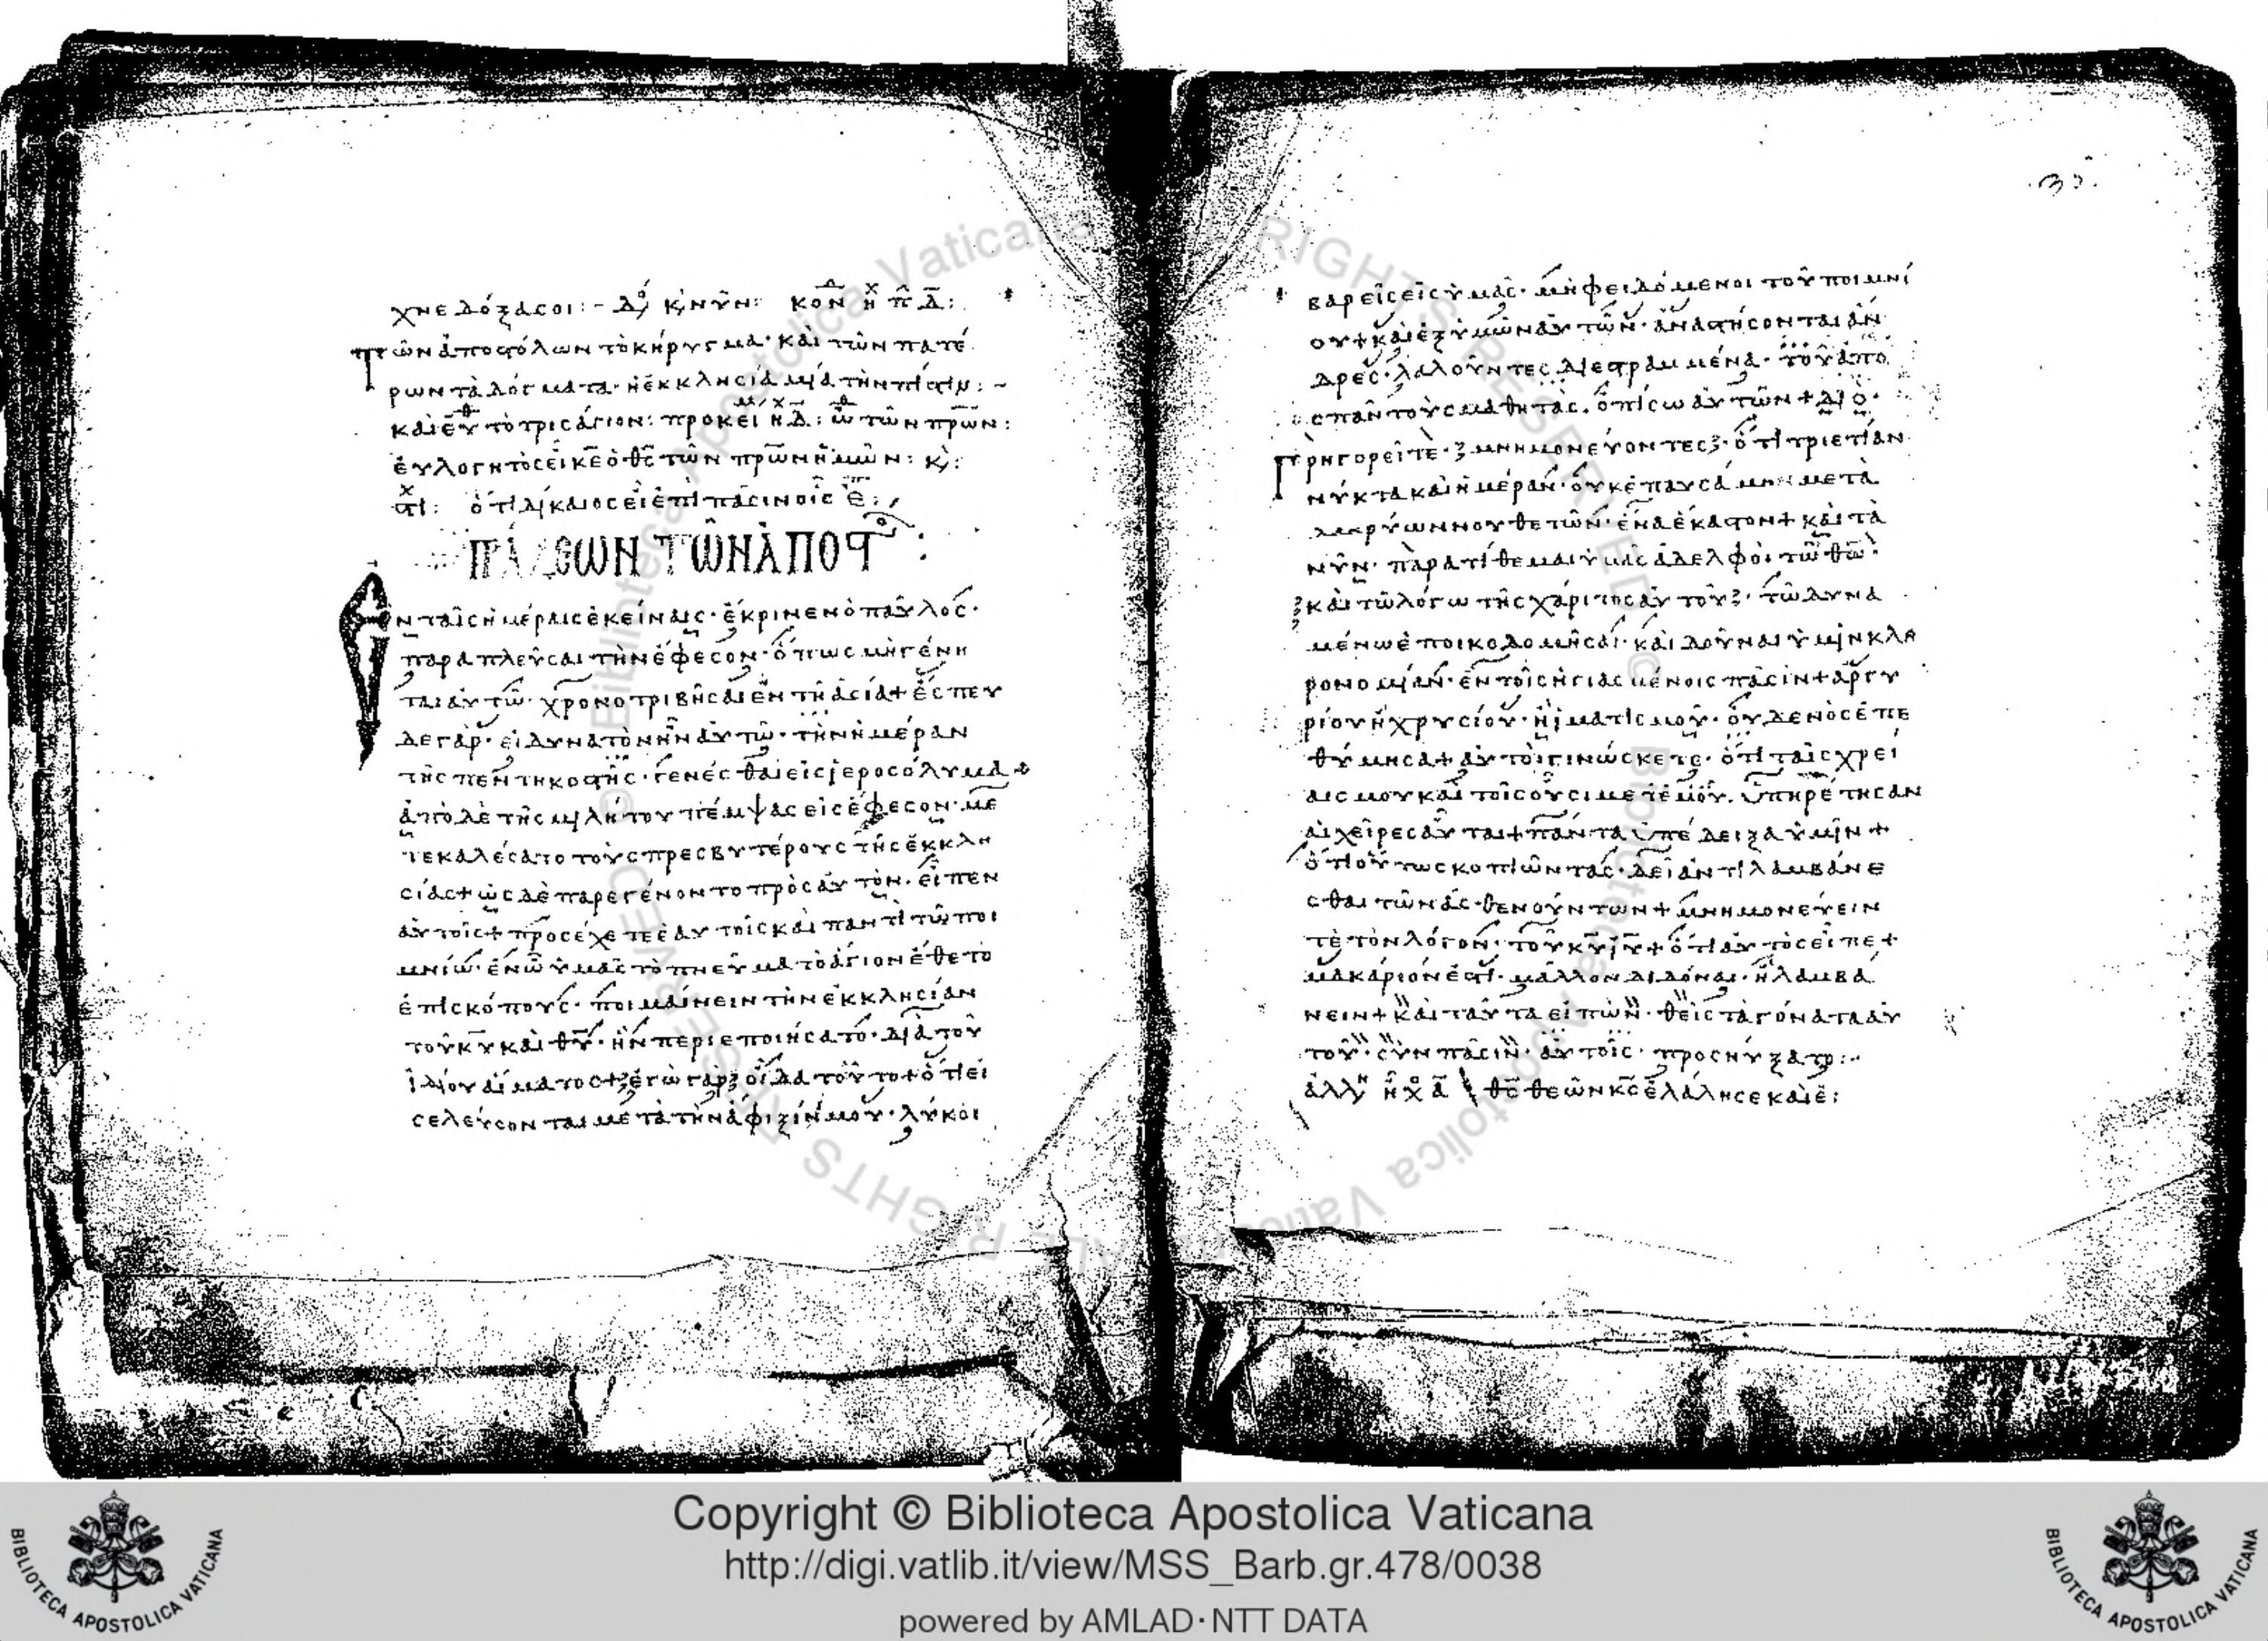 χνε δόξα σοι:- Δό κ, νῦν: κον ἦχ π Δ:
Τῶν ἀποστόλων τὸ κήρυγμα· καὶ τῶν πατέ
ρων τὰ δόγματα· ἡ ἐκκλησία μία τὴν πίστιν:-
καὶ εὐθ τὸ τρισάγιον: προκεί ἦχ Δ: ὠ τῶν πρῶν:
εὐλογητὸς εἶ κε ὁ θς τῶν πρῶν ἡμῶν: κ,:
στι: ὅτι δίκαιος εἶ ἐπὶ πᾶσιν οἷς ἐ:
ΠΡΑΞΕΩΝ ΤΩΝ ΑΠΟϹΤ
Εν ταῖς ἡμέραις ἐκείναις· ἔκρινεν ὁ παῦλος·
παραπλεῦσαι τὴν ἔφεσον· ὅπως μὴ γένη
ται αὐτῶ· χρονοτριβῆσαι ἐν τῆ ἀσία+ ἔσπευ
δε γάρ· εἰ δυνατὸν ἦν αὐτῶ· τὴν ἡμέραν
τῆς πεντηκοστῆς· γενέσθαι εἰς ἱεροσόλυμα+
ἀπὸ δὲ τῆς μιλήτου πέμψας εἰς ἔφεσον· με
τεκαλέσατο τοὺς πρεσβυτέρους τῆς ἐκκλη
σίας+ ὡς δὲ παρεγένοντο πρὸς αὐτόν· εἶπεν
αὐτοῖς+ προσέχετε ἑαυτοῖς καὶ παντὶ τῶ ποι
μνίω· ἐν ὧ ὑμᾶς τὸ πνεῦμα τὸ ἅγιον ἔθετο
ἐπισκόπους· ποιμαίνειν τὴν ἐκκλησίαν
τοῦ κυ καὶ θυ· ἣν περιεποιήσατο· διὰ τοῦ
ἰδίου αἵματος+ ξἐγὼ γὰρξ οἶδα τοῦτο+ ὅτι εἰ
σελεύσονται μετὰ τὴν ἄφιξίν μου· λύκοι
βαρεῖς εἰς ὑμᾶς· μὴ φειδόμενοι τοῦ ποιμνί
ου+ καὶ ἐξ ὑμῶν αὐτῶν· ἀναστήσονται ἄν
δρες· λαλοῦντες διεστραμμένα· τοῦ ἀπο
σπᾶν τοὺς μαθητάς· ὀπίσω αὐτῶν+ διὸ·
Γρηγορεῖτε· ξμνημονεύοντεςξ· ὅτι τριετίαν
νύκτα καὶ ἡμέραν· οὐκ ἐπαυσάμην μετὰ
δακρύων νουθετῶν· ἕνα ἕκαστον+ καὶ τὰ
νῦν· παρατίθεμαι ὑμᾶς ἀδελφοὶ τῶ θῶ·
ξκαὶ τῶ λόγω τῆς χάριτος αὐτοῦξ· τῶ δυνα
μένω ἐποικοδομῆσαι· καὶ δοῦναι ὑμῖν κλη
ρονομίαν· ἐν τοῖς ἡγιασμένοις πᾶσιν+ ἀργυ
ρίου ἢ χρυσίου· ἢ ἱματισμοῦ· οὐδενὸς ἐπε
θύμησα+ αὐτοὶ γινώσκετε· ὅτι ταῖς χρεί
αις μου καὶ τοῖς οὖσι μετ' ἐμοῦ· ὑπηρέτησαν
αἱ χεῖρες αὗται+ πάντα ὑπέδειξα ὑμῖν+
ὅτι οὕτως κοπιῶντας· δεῖ ἀντιλαμβάνε
σθαι τῶν ἀσθενούντων+ μνημονεύειν
τὲ τὸν λόγον· τοῦ κυ ιυ+ ὅτι αὐτὸς εἶπε+
μακάριόν ἐστι· μᾶλλον διδόναι· ἢ λαμβά
νειν+ καὶ ταῦτα εἰπὼν· θεὶς τὰ γόνατα αὐ
τοῦ· σὺν πᾶσιν· αὐτοῖς· προσηύξατο:-
ἀλλη ἦχ α θς θεῶν κς ἐλάλησε καὶ ἐ: